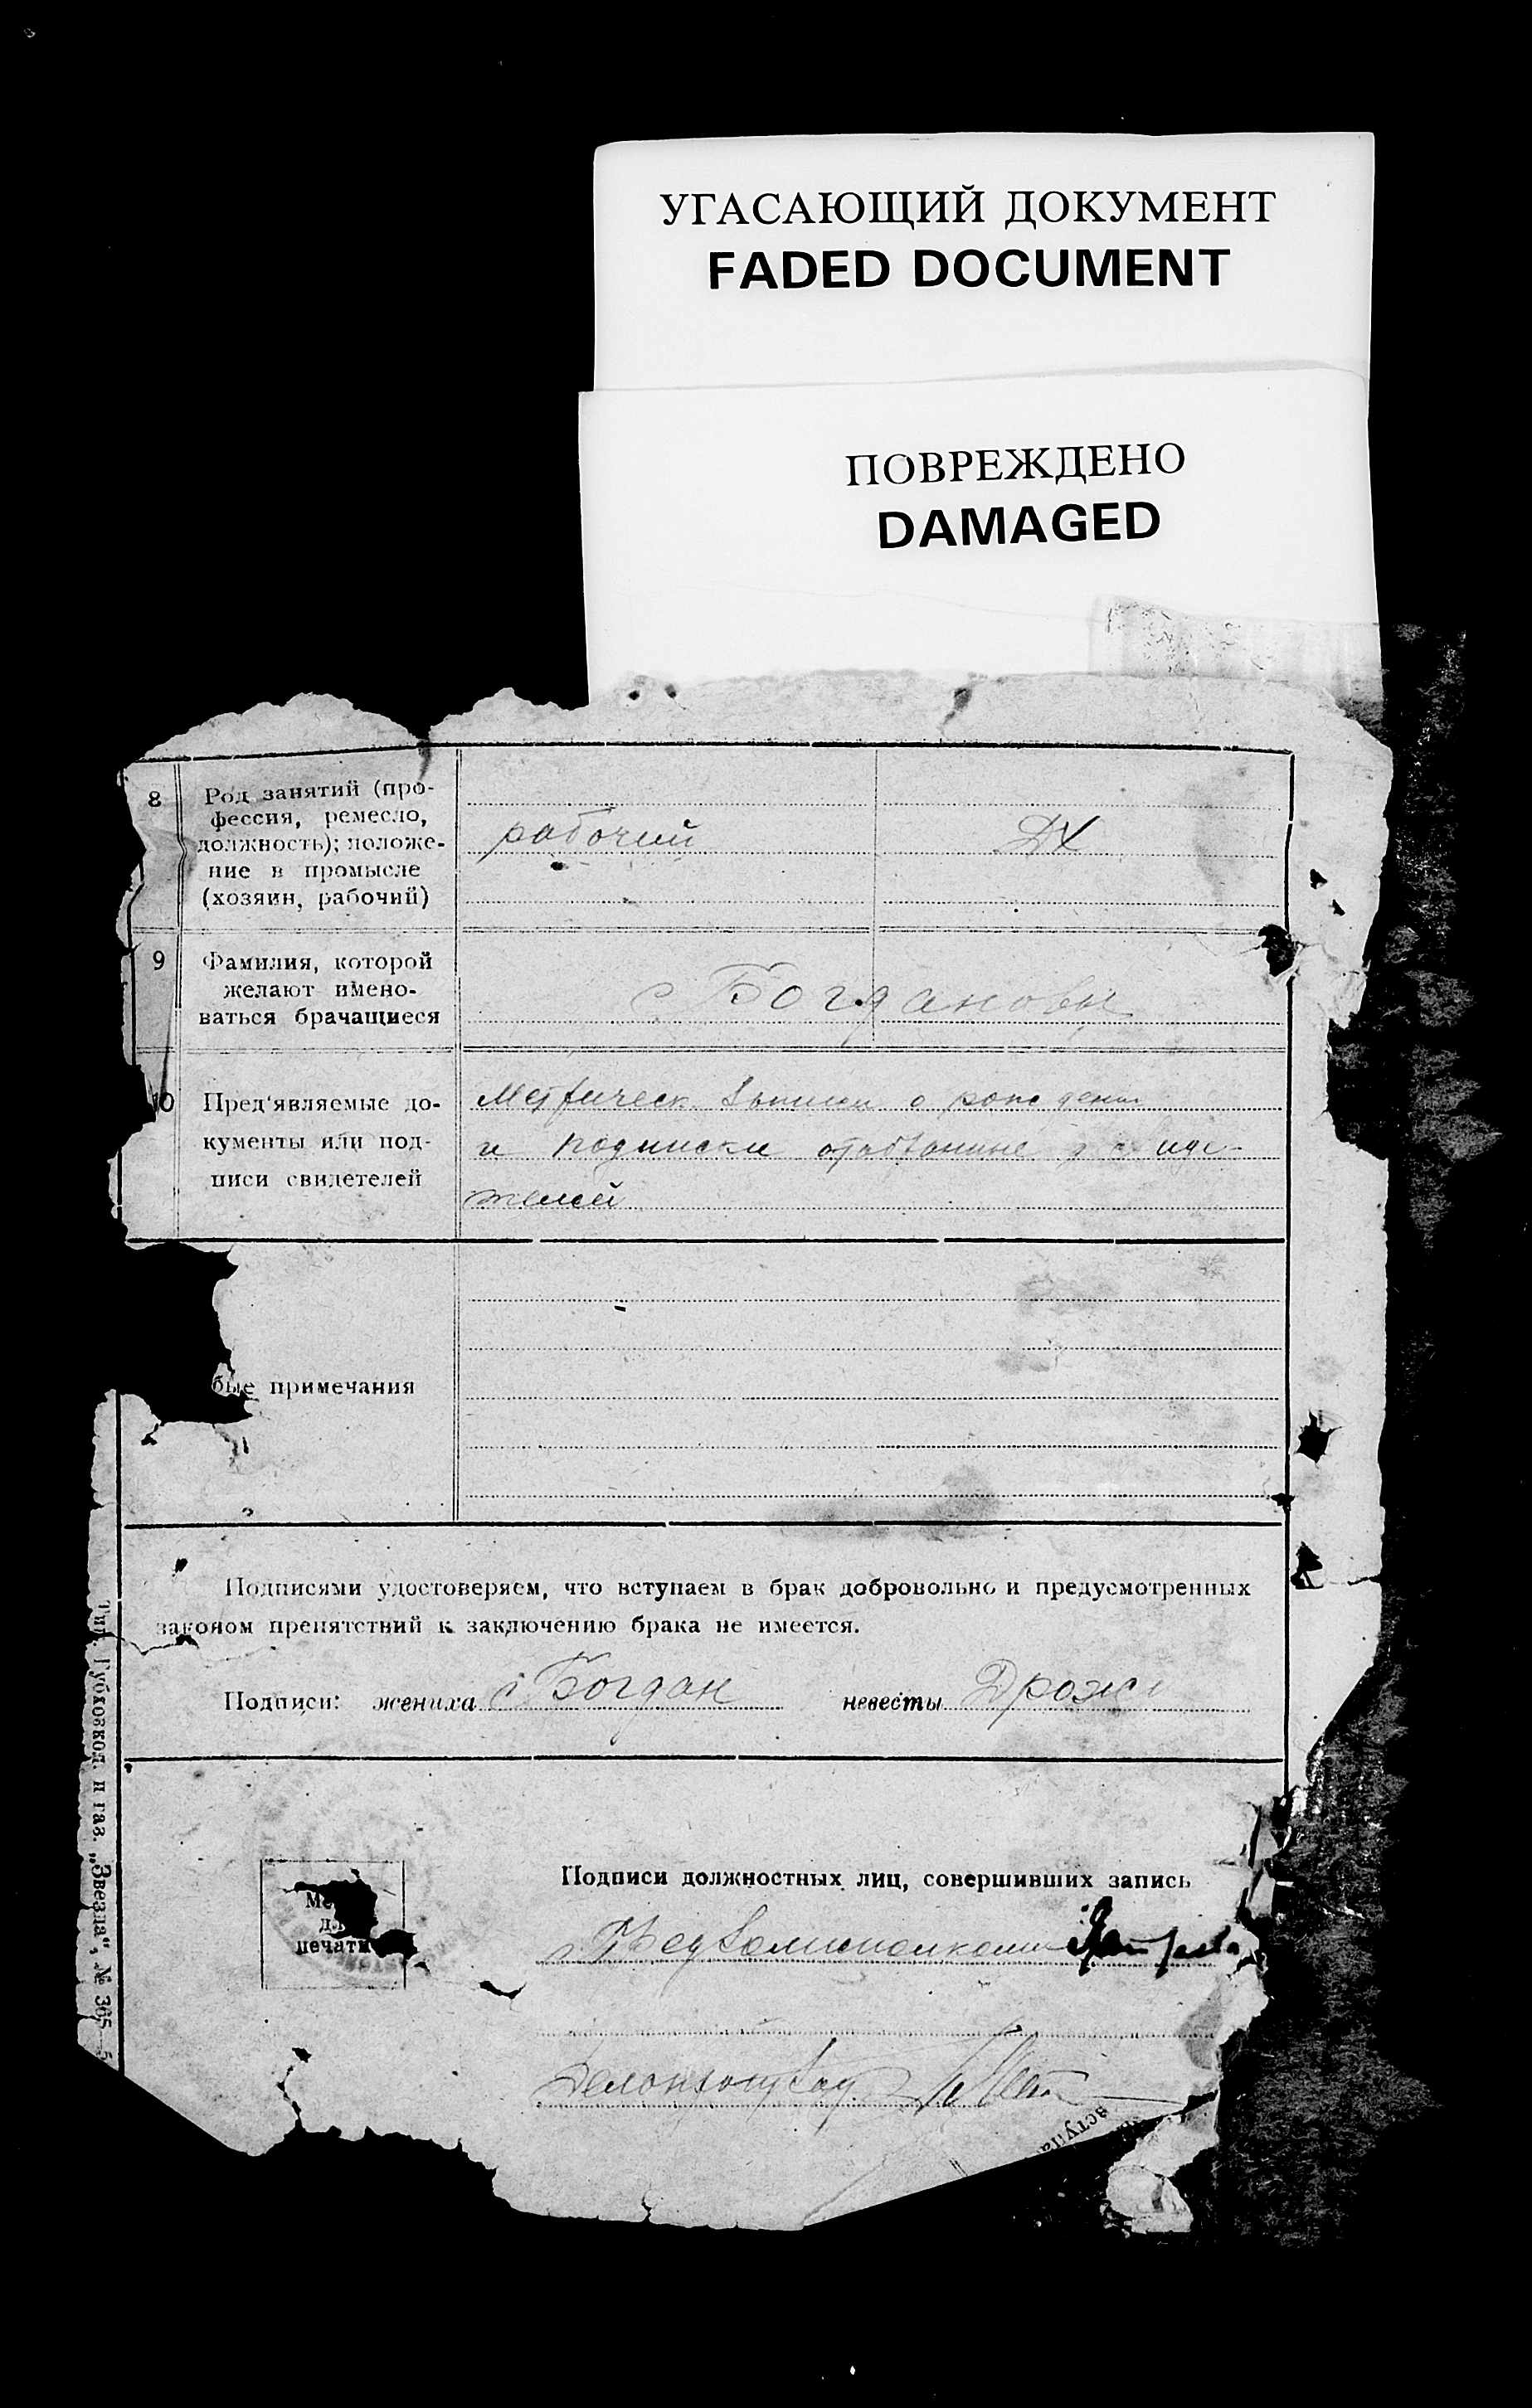 УГАСАЮЩИЙ ДОКУМЕНТ
FADED DOCUMENT
ПОВРЕЖДЕНО
DAMAGED
8
Род занятий (про-
фессия, ремесло,
должность); положе-
ние в промысле
(хозяин, рабочий)
рабочий
ДХ
9
Фамилия, которой
желают имено-
ваться брачащиеся
Богдановы
10
Пред'являемые до-
кументы или под-
писи свидетелей
о рождении
и подписки
телей
бые примечания
Подписями удостоверяем, что вступаем в брак добровольно и предусмотренных
законом препятствий к заключению брака не имеется.
Подписи: жениха Богдан невесты Дрож
Ме
дл
печати
Подписи должностных лиц, совершивших запись
Тип. Губховкод. п газ. „Звезда“, № 365
вступа